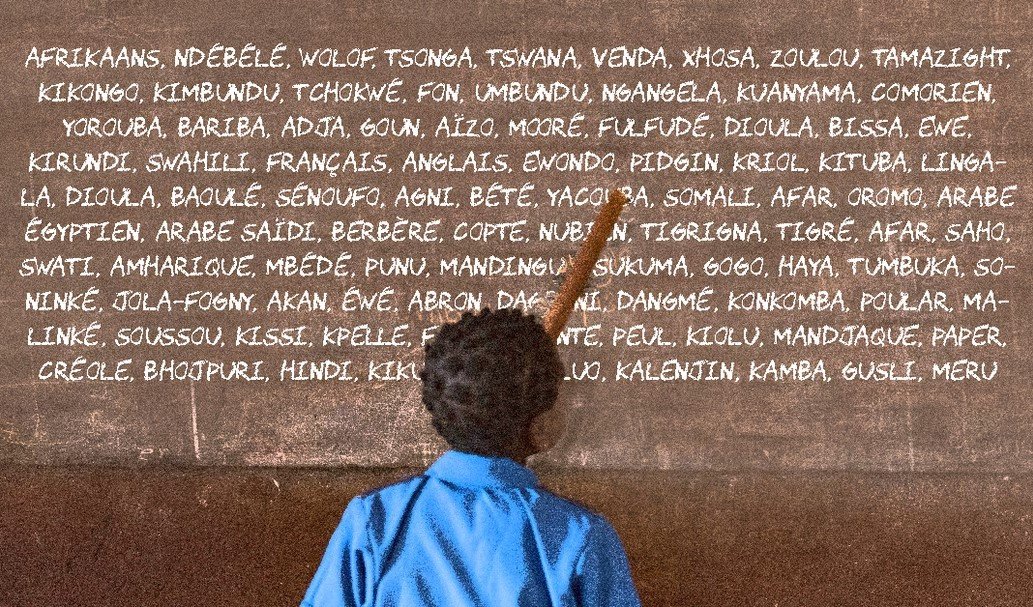 AFRIKAANS, NDÉBÉLÉ, WOLOF, TSONGA, TSWANA, VENDA, XHOSA, ZOULOU, TAMAZIGHT,
KIKONGO, KIMBUNDU, TCHOKWÉ, FON, UMBUNDU, NGANGELA, KUANYAMA, COMORIEN,
YOROUBA, BARIBA, ADJA, GOUN, AÏZO, MOORÉ, FULFUDÉ, DIOULA, BISSA, EWE,
KIRUNDI, SWAHILI, FRANÇAIS, ANGLAIS, EWONDO, PIDGIN, KRIOL, KITUBA, LINGA-
LA, DIOULA, BAOULÉ, SÉNOUFO, AGNI, BÉTÉ, YACOUBA, SOMALI, AFAR, OROMO, ARABE
ÉGYPTIEN, ARABE SAÏDI, BERBÈRE, COPTE, NUBIEN, TIGRIGNA, TIGRÉ, AFAR, SAHO,
SWATI, AMHARIQUE, MBÉDÉ, PUNU, MANDINGU, SUKUMA, GOGO, HAYA, TUMBUKA, SO-
NINKÉ, JOLA-FOGNY, AKAN, ÉWÉ, ABRON, DANGMÉ, KONKOMBA, POULAR, MA-
LINKÉ, SOUSSOU, KISSI, KPELLE, PEUL, KIOLU, MANDJAQUE, PAPER,
CRÉOLE, BHOJPURI, HINDI, LUO, KALENJIN, KAMBA, GUSLI, MERU